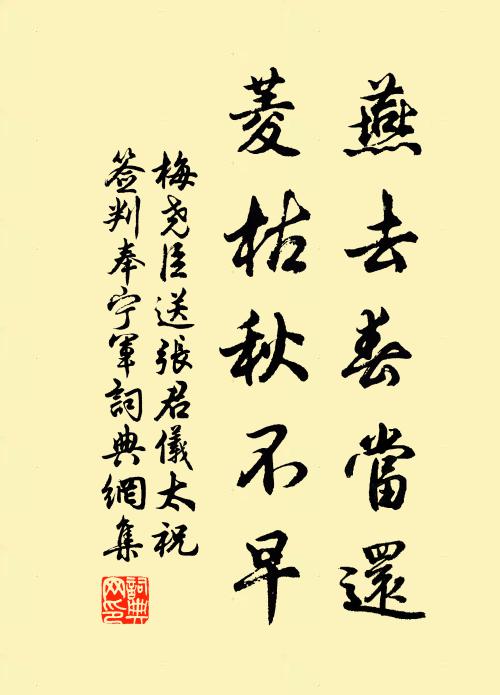 燕去春當還
菱枯秋不早
梅堯臣送張君儀太祝
簽判奉寧軍詞典網集
詞典網印